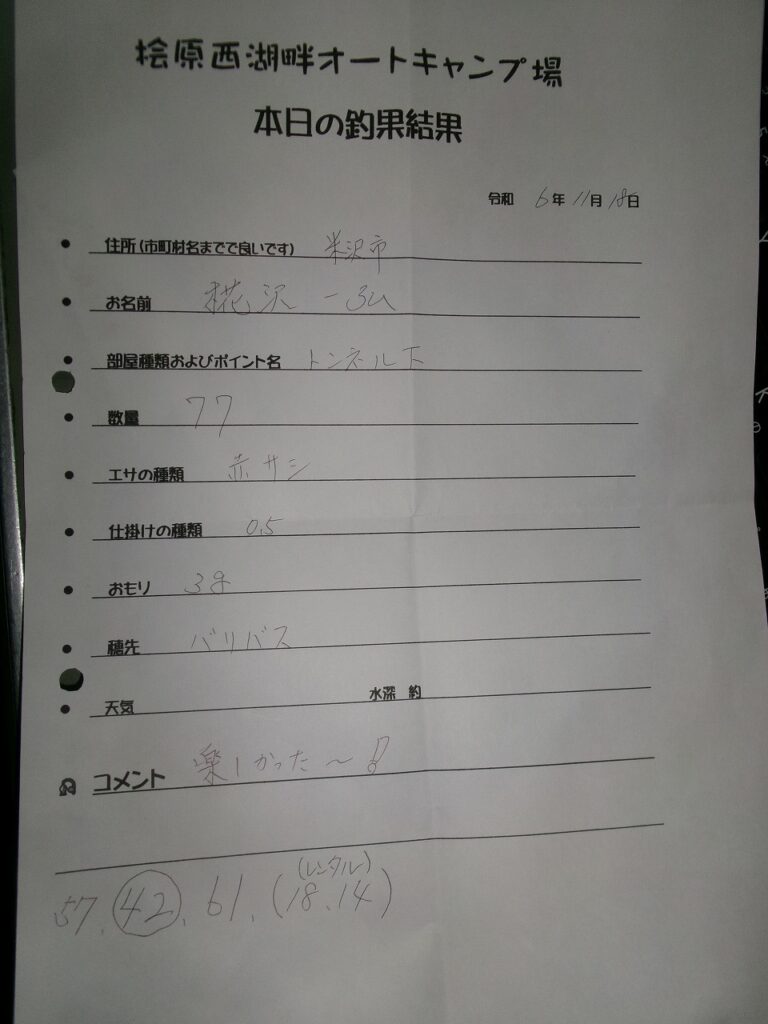 桧原西湖畔オートキャンプ場
本日の釣果結果
令和 6年 11月 18日
住所(市町村名までで良いです) 米沢市
お名前 椛沢 一弘
部屋種類およびポイント名 トンネル下
数量 77
エサの種類 赤サシ
仕掛けの種類 0.5
おもり 3g
穂先 バリバス
天気 水深 約
コメント 楽しかった〜!
(レンタル)
57. 42. 61. (18.14)